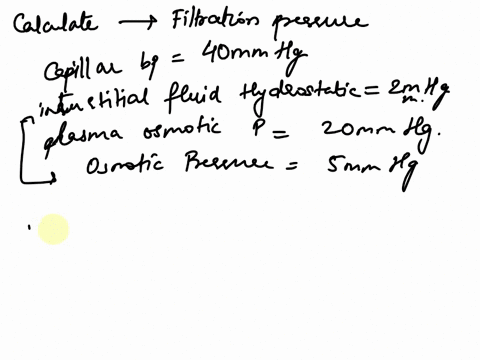 Calculate → Filtration pressure
Capillar bp = 40mm Hg
interstitial fluid Hydrostatic = 2mm Hg
plasma osmotic P = 20mm Hg.
Osmotic Pressure = 5mm Hg